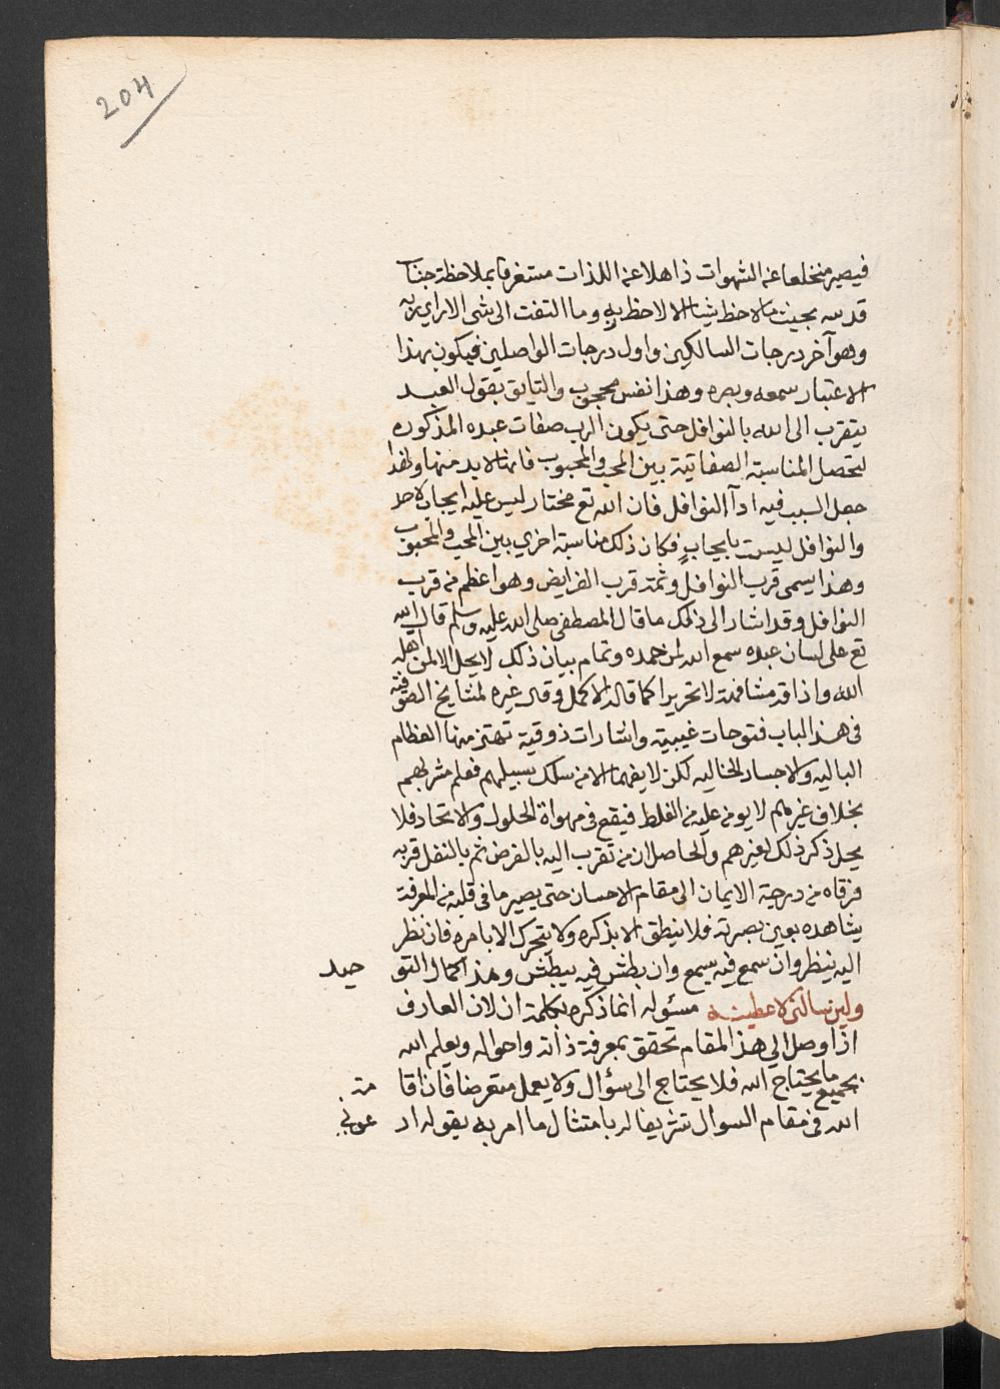 204
فيصير منخلعا عن الشهوات ذاهلا عن اللذات مستغرقا بملاحظة جناب
قدسه بحيث ما لاحظ شيئا الا لاحظ ربه وما التفت الى شى الا راي ربه
وهو آخر درجات السالكين واول درجات الواصلين فيكون بهذا
الاعتبار سمعه وبصره وهذا نفس محجوب والتايق بقول العبد
يتقرب الى الله بالنوافل حتى يكون الرب صفات عبده المذكوره
لتحصل المناسبة الصفاتية بين المحب والمحبوب فانها لا بد منها ولهذا
جعل السبب فيه ادآ النوافل فان الله تع مختار ليس عليه ايجاد لاحد
والنوافل ليست بايجاب فكان ذلك مناسبة اخري بين المحب والمحبوب
وهذا يسمى قرب النوافل وثمة قرب الفرايض وهو اعظم من قرب
النوافل وقد اشار الى ذلك ما قال المصطفى صلى الله عليه وسلم قال الله
تع على لسان عبده سمع الله لمن حمده وتمام بيان ذلك لا يحل الا لمن اهله
الله واذا قد مشافهة لا تحريرا كما قاله الاكمل وقال غيره لمشايخ الصوفية
فى هذا الباب فتوحات غيبية واشارات ذوقية تهتز منها العظام
الباليه والاجساد الخاليه لكن لا يفهمها الا من سلك سبيلهم فعلم مشربهم
بخلاف غيرهم لا يومن عليه من الغلط فيقع فى مهواة الحلول والاتحاد فلا
يحل ذكر ذلك لغيرهم والحاصل ان من تقرب اليه بالفرض ثم بالنفل قربه
فرقاه من درجة الايمان الى مقام الاحسان حتى يصير ما فى قلبه من المعرفة
يشاهده بعين بصيرته فلا ينطق الا بذكره ولا يتحرك الا بامره فان نظر
اليه ينظر وان سمع فيه يسمع وان بطش فيه يبطش وهذا كمال التو حيد
ولين سالنى لاعطينه مسئوله انما ذكره بكلمة ان لان العارف
اذا وصل الي هذا المقام تحقق بمعرفة ذاته واحواله ويعلم الله
بجميع ما يحتاج الله فلا يحتاج الى سؤال ولا يعمل متعرضا فاذا قا مه
الله فى مقام السوال تشريفا له بامتثال ما امر به بقوله اد عونى